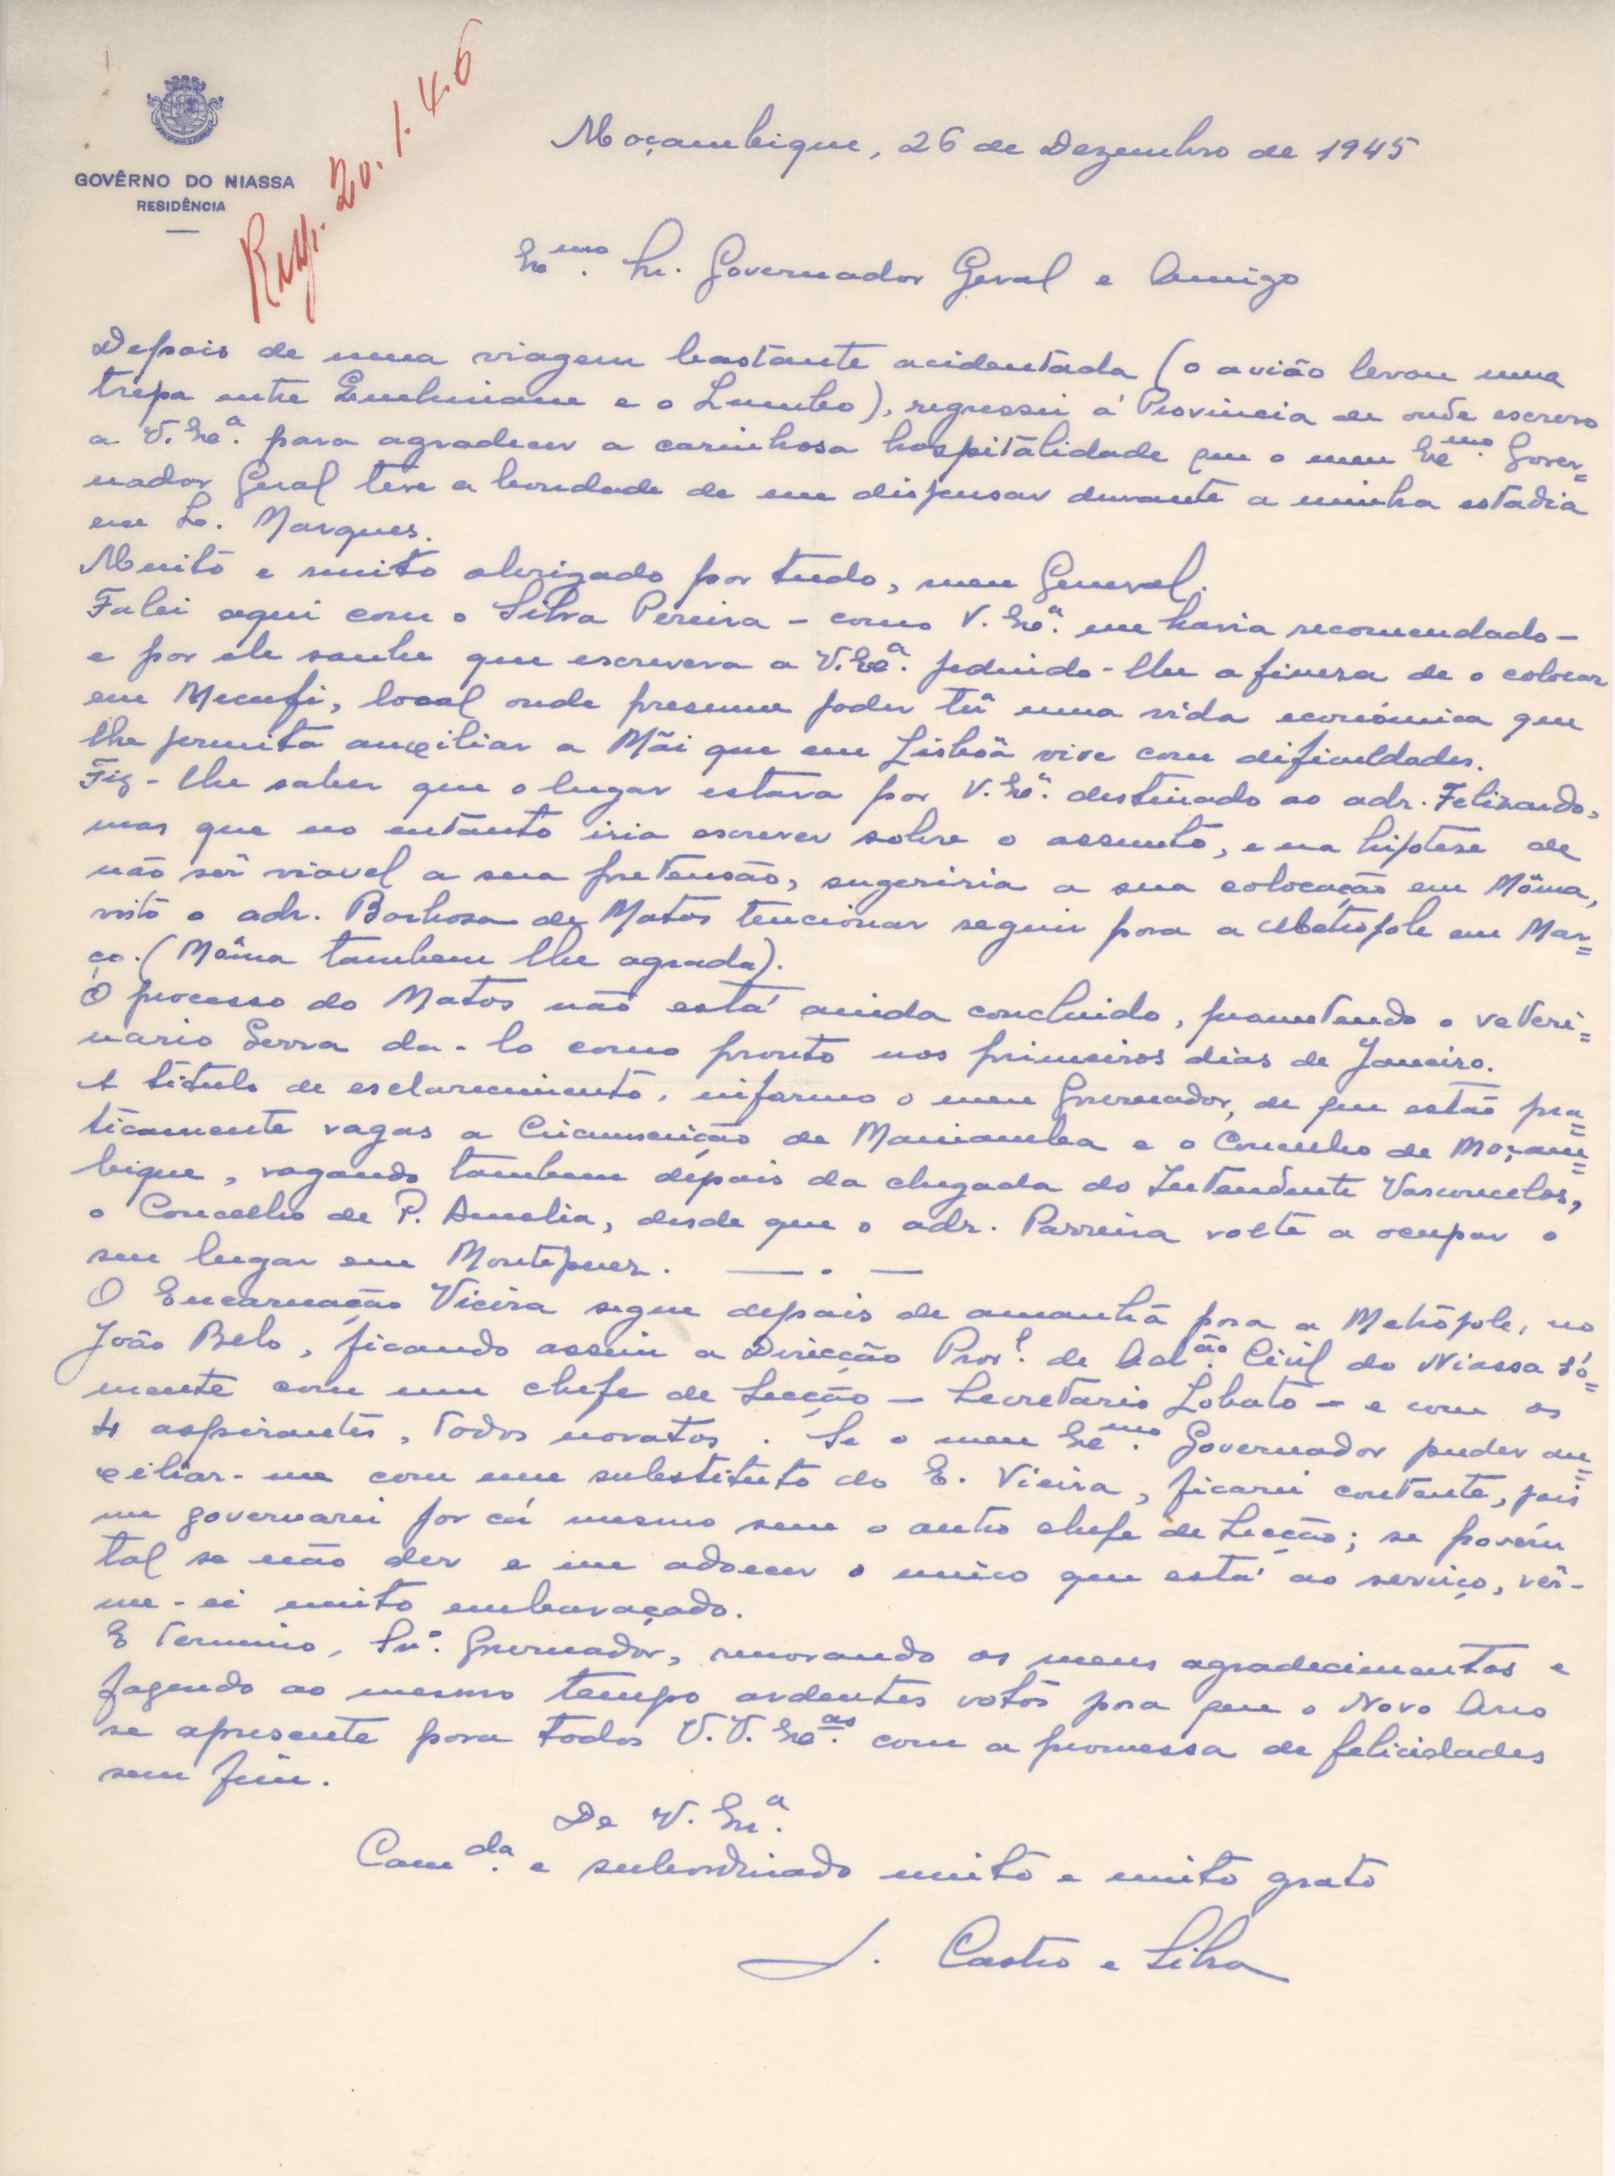 GOVÊRNO DO NIASSA
RESIDÊNCIA
Resp. 20.1.46
Moçambique, 26 de Dezembro de 1945
Exmo. Sr. Governador Geral e Amigo
Depois de uma viagem bastante acidentada (o avião levou uma
trepa entre Quelimane e o Lumbo), regressei á Provincia de onde escrevo
a V. Exª. para agradecer a carinhosa hospitalidade que o meu Exmo. Gover=
nador Geral teve a bondade de me dispensar durante a minha estadia
em L. Marques.
Muito e muito obrigado por tudo, meu General.
Falei aqui com o Silva Pereira - como V. Exª. me havia recomendado -
e por ele soube que escrevera a V. Exª. pedindo-lhe a fineza de o colocar
em Mecufi, local onde presume poder têr uma vida económica que
lhe permita auxiliar a Mãi que em Lisbôa vive com dificuldades.
Fiz-lhe saber que o lugar estava por V. Exª. destinado ao adr. Felizardo,
mas que no entanto iria escrever sobre o assunto, e na hipótese de
não sêr viavel a sua pretensão, sugeriria a sua colocação em Môma,
visto o adr. Barbosa de Matos tencionar seguir para a Metropole em Mar=
ço. (Môma tambem lhe agrada).
O processo do Matos não está ainda concluido, prometendo o veteri=
nario Serra da-lo como pronto nos primeiros dias de Janeiro.
A titulo de esclarecimento, informo o meu Governador, de que estão pra=
ticamente vagas a Circunscrição de Maniamba e o Concelho de Moçam=
bique, vagando tambem depois da chegada do Intendente Vasconcelos,
o Concelho de P. Amelia, desde que o adr. Parreira volte a ocupar o
seu lugar em Montepuez. — . —
O Encarnação Vieira segue depois de amanhã para a Metrópole, no
João Belo, ficando assim a Direcção Provl. de Admão. Civil do Niassa só=
mente com um chefe de Secção - Secretario Lobato - e com os
4 aspirantes, todos novatos. Se o meu Exmo. Governador puder au=
xiliar-me com um substituto do E. Vieira, ficarei contente, pois
me governarei por cá mesmo sem o outro chefe de Secção; se porém
tal se não der e me adoecer o unico que está ao serviço, vêr-
me-ei muito embaraçado.
E termino, Snr. Governador, renovando os meus agradecimentos e
fazendo ao mesmo tempo ardentes votos para que o Novo Ano
se apresente para todos V. V. Exas. com a promessa de felicidades
sem fim.
De V. Exª.
Camda. e subordinado muito e muito grato
J. Castro e Silva